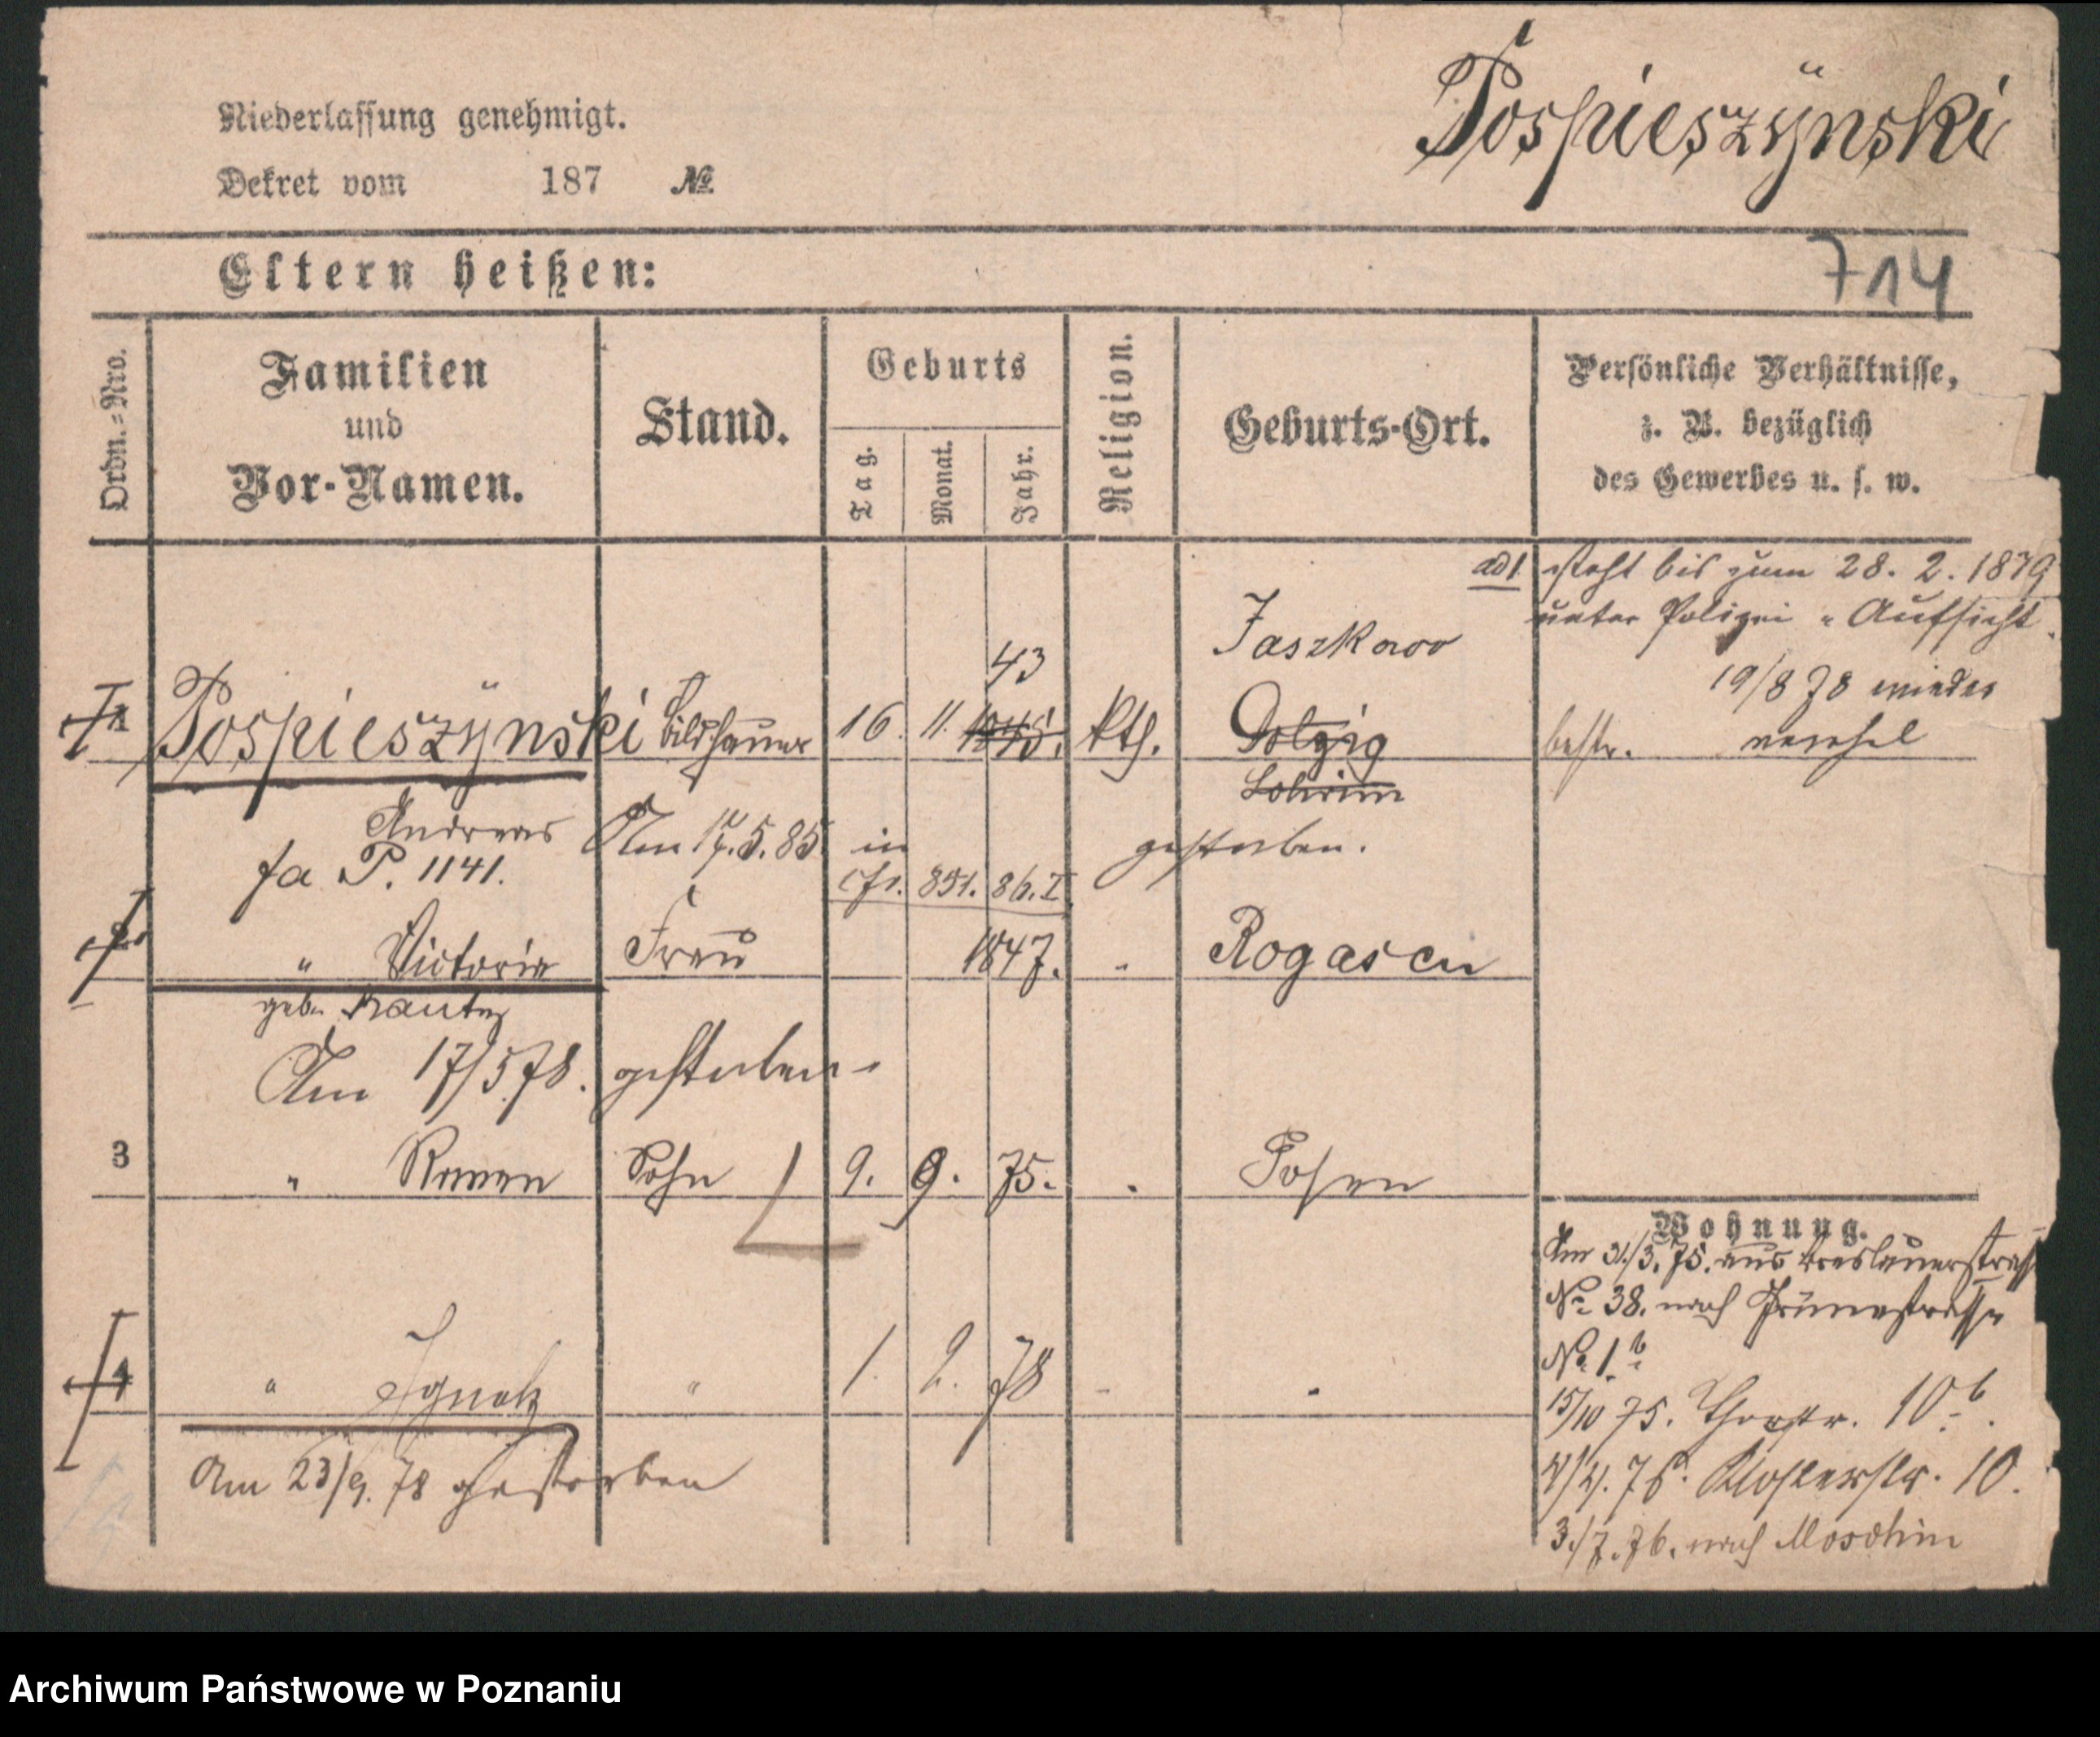 Pospieszÿnski
Niederlassung genehmigt.
Dekret vom 187 №
Eltern heißen:
714
Ordn.-Nro.
Familien
und
Vor-Namen.
Stand.
Geburts
Tag.
Monat.
Jahr.
Religion.
Geburts-Ort.
Persönliche Verhältnisse,
z. B. bezüglich
des Gewerbes u. s. w.
ad 1 steht bis zum 28. 2. 1879
unter Polizei-Aufsicht.
Jaszkowo
43
19/8 78 wieder
1 Pospieszÿnski Bildhauer 16. 11. 1845. kth. Dolzig
bestr.
Andreas Am 17. 5. 85. in gestorben.
fa P. 1141.
cfr. 851. 86. I
2 " Victoria Frau 1847. " Rogasen
geb.
Am 17/5 78. gestorben
3 " Roman Sohn 9. 9. 75. " Posen
Wohnung.
Am 31/3. 75. aus Breslauerstrasse
No 38. nach Grünestrasse
No 1 b
4 " Ignatz " 1. 2. 78 " "
15/10 75. Thorstr. 10 b.
Am 23/9. 78 gestorben
4/4. 76. Klosterstr. 10.
3./7. 76. nach Moschin
Archiwum Państwowe w Poznaniu